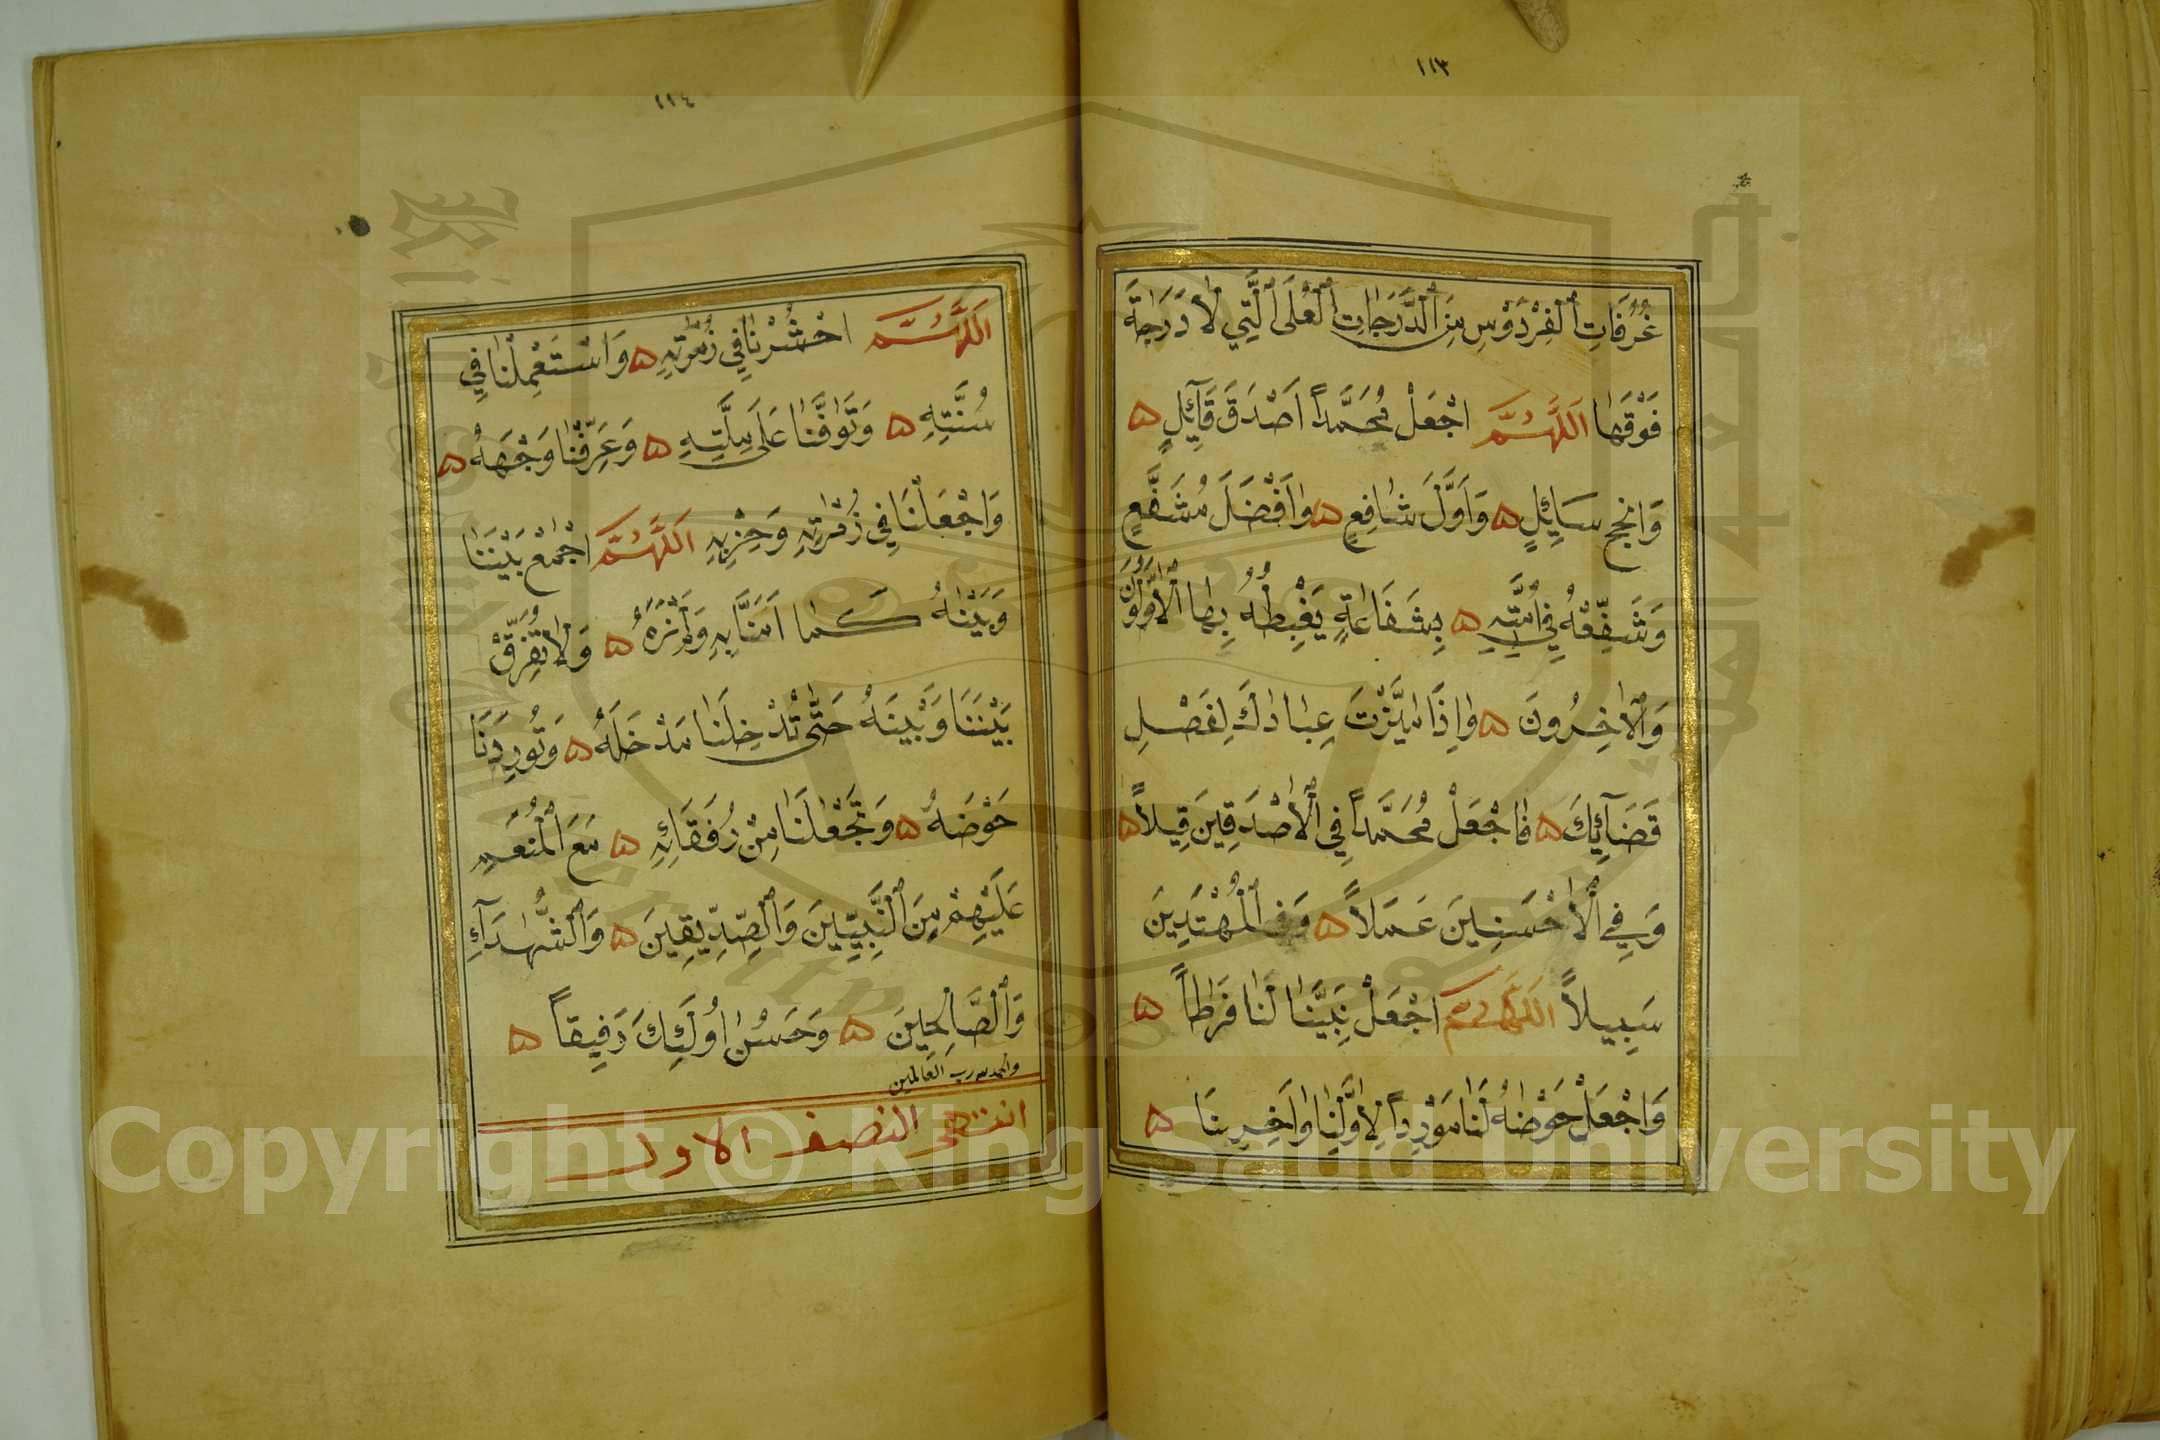 ١١٣
غُرُفَاتِ الْفِرْدَوْسِ مِنَ الدَّرَجَاتِ الْعُلَى الَّتِي لَا دَرَجَةَ
فَوْقَهَا اَللّٰهُمَّ اجْعَلْ مُحَمَّدًا اَصْدَقَ قَآئِلٍ ۵
وَانجَحَ سَايِٕلٍ ۵ وَاَوَّلَ شَافِعٍ ۵ وَاَفْضَلَ مُشَفَّعٍ
وَشَفِّعْهُ فِي اُمَّتِهِ ۵ بِشَفَاعَةٍ يَغْبِطُهُ بِهَا الْاَوَّلُونَ
وَالْاٰخِرُونَ ۵ وَاِذَا مَيَّزْتَ عِبَادَكَ لِفَصْلِ
قَضَآئِكَ ۵ فَاجْعَلْ مُحَمَّدًا فِي الْاَصْدَقِينَ قِيلًا ۵
وَفِي الْاَحْسَنِينَ عَمَلًا ۵ وَفِي الْمُهْتَدِينَ
سَبِيلًا اَللّٰهُمَّ اجْعَلْ نَبِيَّنَا لَنَا فَرَطًا ۵
وَاجْعَلْ حَوْضَهُ لَنَا مَوْرِدًا لِاَوَّلِنَا وَاٰخِرِنَا ۵
١١٤
اَللّٰهُمَّ احْشُرْنَا فِي زُمْرَتِهِ ۵ وَاسْتَعْمِلْنَا فِي
سُنَّتِهِ ۵ وَتَوَفَّنَا عَلَى مِلَّتِهِ ۵ وَعَرِّفْنَا وَجْهَهُ ۵
وَاجْعَلْنَا فِي زُمْرَتِهِ وَحِزْبِهِ اَللّٰهُمَّ اجْمَعْ بَيْنَنَا
وَبَيْنَهُ كَمَا اٰمَنَّا بِهِ وَلَمْ نَرَهُ ۵ وَلَا تُفَرِّقْ
بَيْنَنَا وَبَيْنَهُ حَتّٰى تُدْخِلَنَا مَدْخَلَهُ ۵ وَتُورِدَنَا
حَوْضَهُ ۵ وَتَجْعَلَنَا مِنْ رُفَقَائِهِ ۵ مَعَ الْمُنْعَمِ
عَلَيْهِمْ مِنَ النَّبِيِّينَ وَالصِّدِّيقِينَ ۵ وَالشُّهَدَآءِ
وَالصَّالِحِينَ ۵ وَحَسُنَ اُولٰئِكَ رَفِيقًا ۵
والحمد لله رب العالمين
انتهى النصف الاول
Copyright © King Saud University